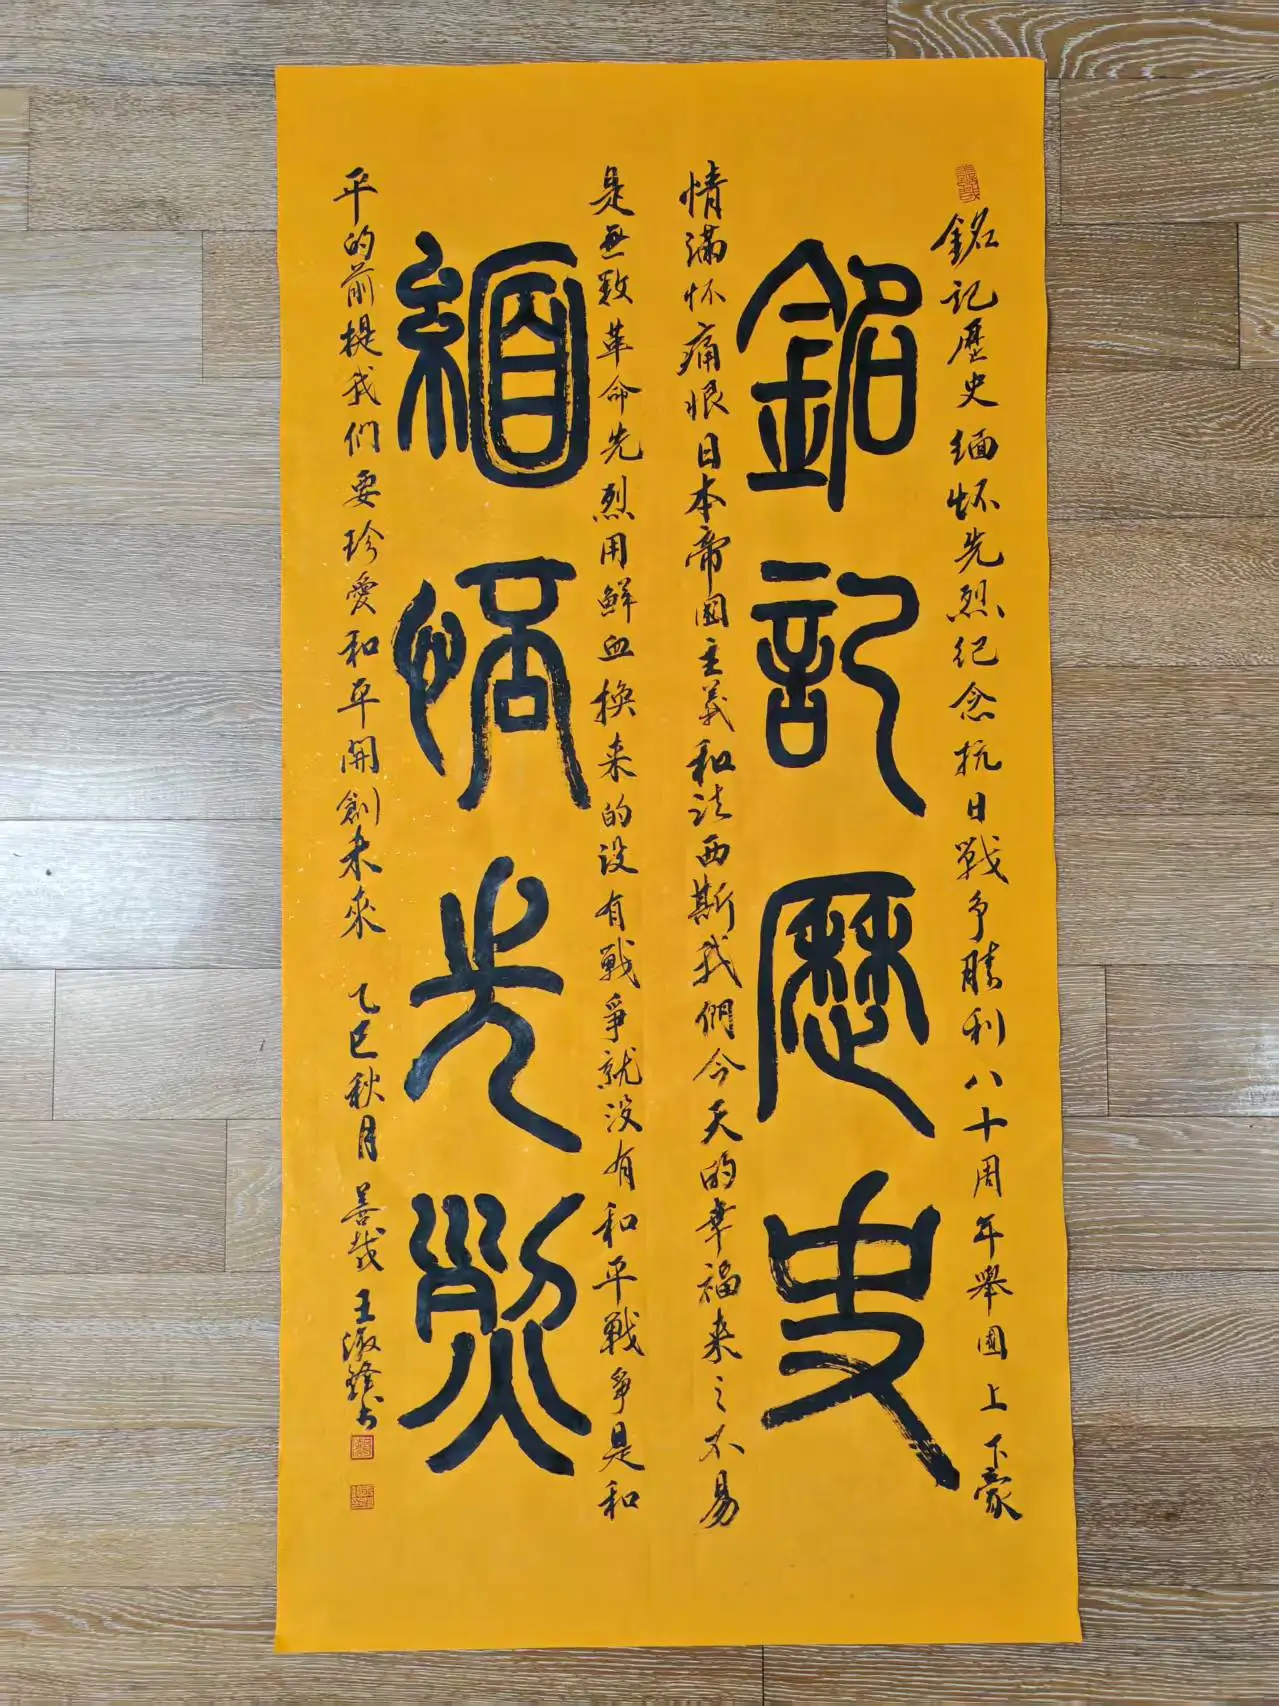 銘記歷史緬怀先烈纪念抗日戰争勝利八十周年舉國上下豪
銘記歷史
情滿怀痛恨日本帝國主義和法西斯我們今天的幸福来之不易
是無数革命先烈用鲜血換来的没有戰爭就没有和平戰爭是和
緬懷先烈
平的前提我们要珍愛和平開創未來 乙巳秋月 善哉 王